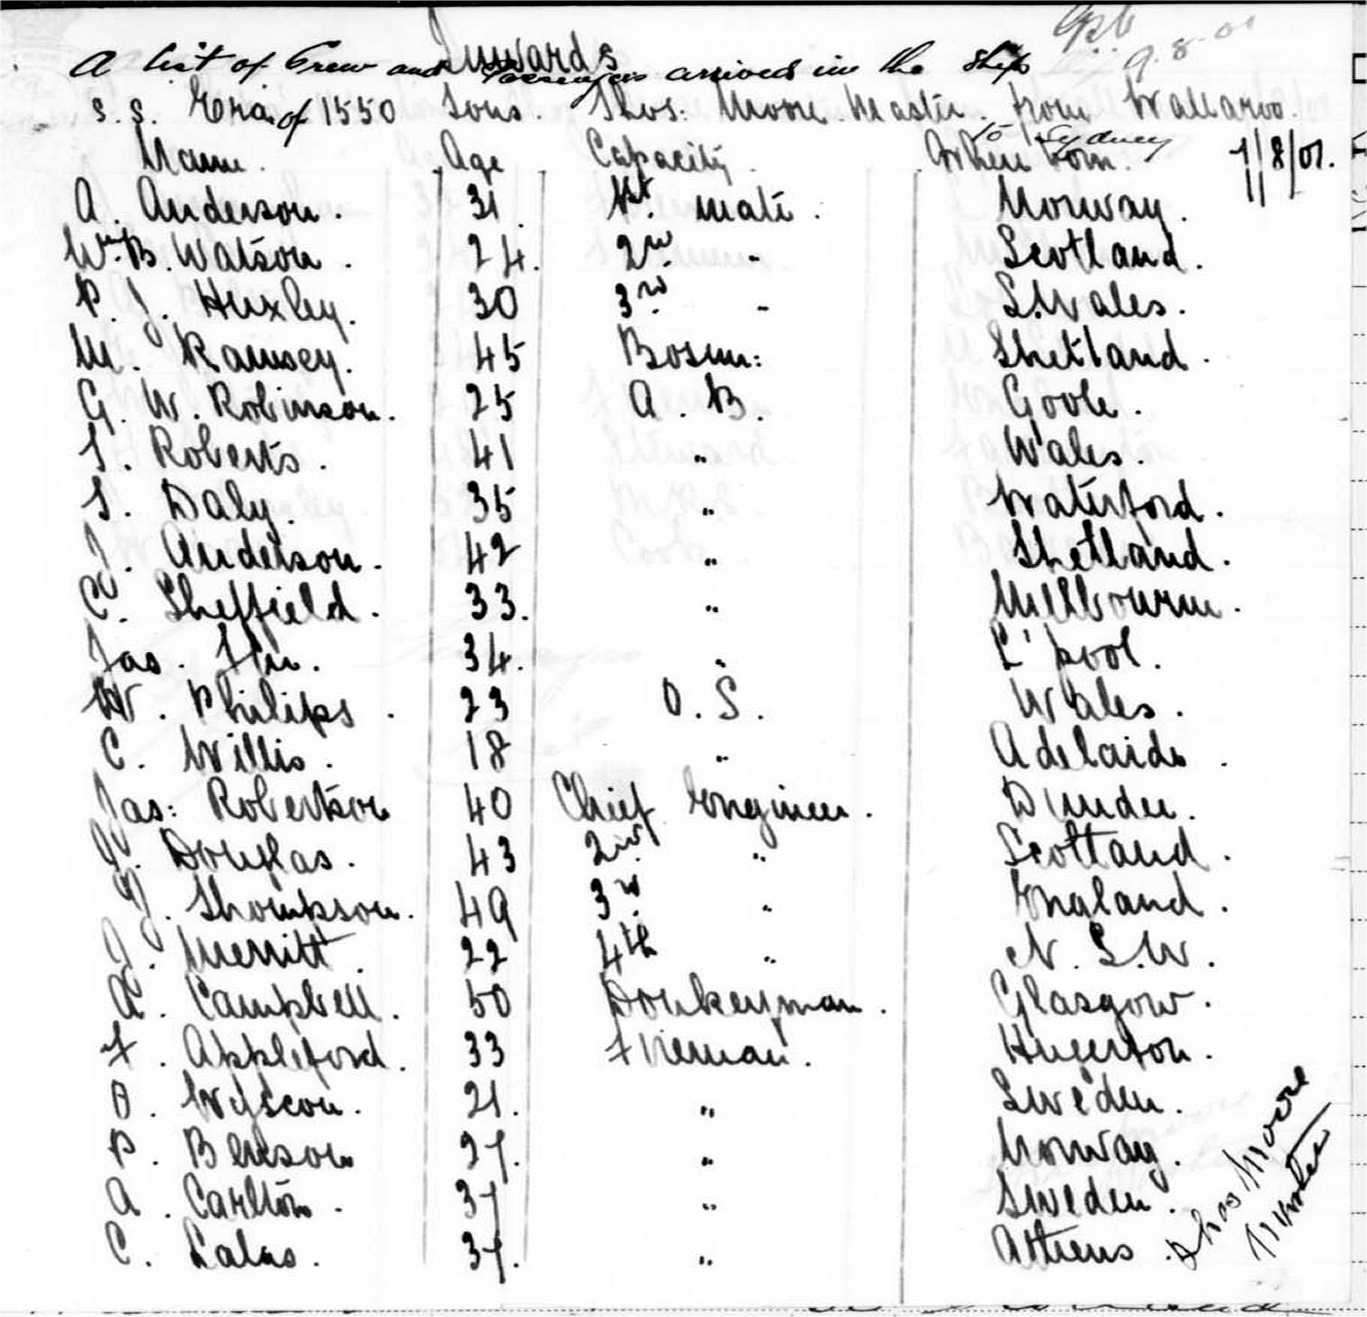 Inwards
A list of Crew and Passengers arrived in the ship 9.8.01
S.S. Eria of 1550 Tons. Thos: Moore. Master. from Wallaroo
to Sydney
Name. Age Capacity. Where born. 7/8/01.
A. Anderson. 31. 1st. mate. Norway.
Wm B. Watson. 24. 2nd. " Scotland.
P. J. Huxley. 30 3rd " S. Wales.
M. Ramsey. 45 Bosun: Shetland.
G. W. Robinson. 25 A. B. Goole.
T. Roberts. 41 " Wales.
T. Daly. 35 " Waterford.
J. Anderson. 42 " Shetland.
C. Sheffield. 33. " Melbourne.
Jas. 34. " L'pool.
W. Philips. 23 O. S. Wales.
C. Willis. 18 " Adelaide.
Jas: Robertson 40 Chief Engineer. Dundee.
J. Douglas. 43 2nd. " Scotland.
J. Thompson. 49 3rd. " England.
J. Merritt. 22 4th " N. S. W.
A. Campbell. 50 Donkeyman. Glasgow.
F. Appleford. 33 Fireman.
O. 21. " Sweden.
P. Benson 27. " Norway.
A. Carlton. 37 " Sweden.
C. Lalas. 37. " Athens.
Thos Moore
Master